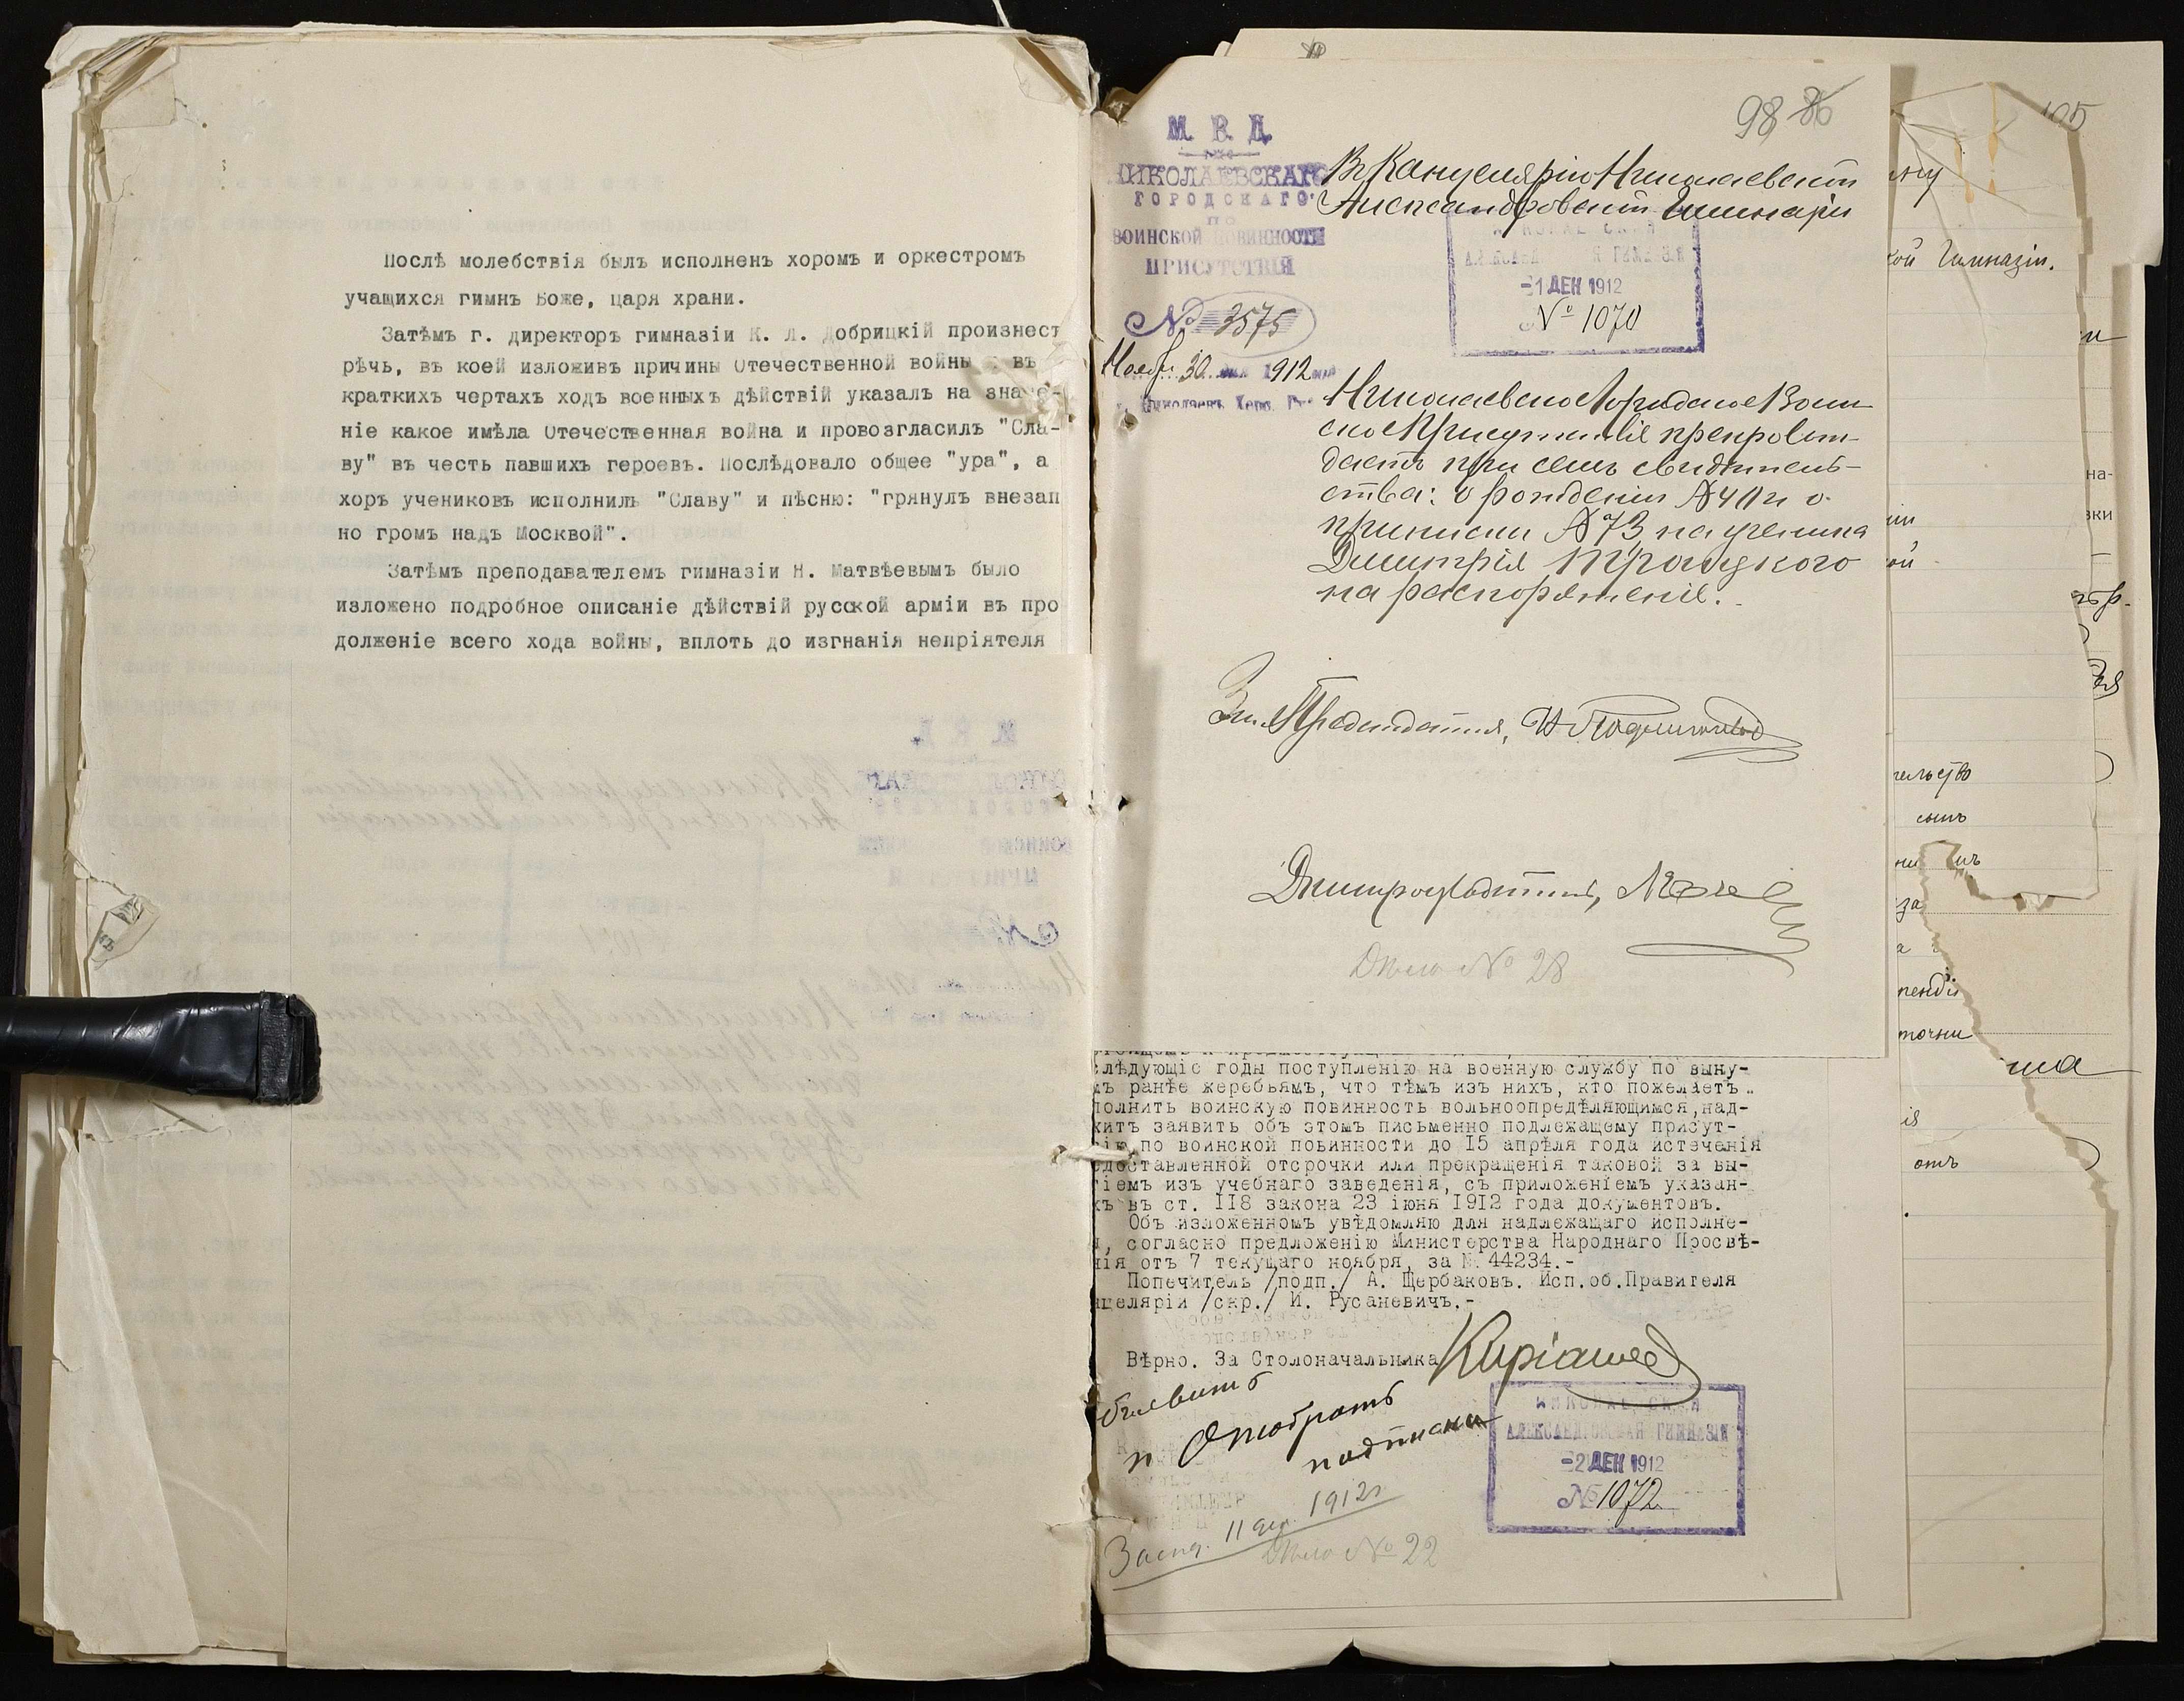 Послѣ молебствія былъ исполненъ хоромъ и оркестромъ
учащихся гимнъ Боже, царя храни.
Затѣмъ г. директоръ гимназіи К. Л. Добрицкій произнест
рѣчь, въ коей изложивъ причины Отечественной войны въ
краткихъ чертахъ ходъ военныхъ дѣйствій указалъ на значе-
ніе какое имѣла Отечественная война и провозгласилъ "Сла-
ву" въ честь павшихъ героевъ. Послѣдовало общее "ура", а
хоръ учениковъ исполнилъ "Славу" и пѣсню: "грянулъ внезап
но громъ надъ Москвой".
Затѣмъ преподавателемъ гимназіи Н. Матвѣевымъ было
изложено подробное описаніе дѣйствій русской арміи въ про
долженіе всего хода войны, вплоть до изгнанія непріятеля
98 86
М. В. Д.
НИКОЛАЕВСКАГО
ГОРОДСКАГО
ПО
ВОИНСКОЙ ПОВИННОСТИ
ПРИСУТСТВІЯ
№ 3575
Нояб. 30 дня 1912 года
г. Николаевъ Херс. Г.
Въ Канцелярію Николаевской
Александровской Гимназіи
НИКОЛАЕВСКАЯ
АЛЕКСАНДРОВСКАЯ ГИМНАЗІЯ
-1 ДЕК 1912
№ 1070
Николаевское Городское Воин
ское Присутствіе препровож-
даетъ при семъ свидѣтель-
ства: о рожденіи № 411 и о
припискѣ № 73 на ученика
Дмитрія Троицкого
на распоряженіе.
Зам. Предсѣдателя,
Дѣлопроизводитель,
Дѣло № 28
слѣдующіе годы поступленію на военную службу по выну-
ъ ранѣе жеребьямъ, что тѣмъ изъ нихъ, кто пожелаетъ
полнить воинскую повинность вольноопредѣляющимся, над-
житъ заявить объ этомъ письменно подлежащему присут-
ію по воинской повинности до 15 апрѣля года истеченія
едоставленной отсрочки или прекращенія таковой за вы-
тіемъ изъ учебнаго заведенія, съ приложеніемъ указан-
хъ въ ст. 118 закона 23 іюня 1912 года документовъ.
Объ изложенномъ увѣдомляю для надлежащаго исполне-
я, согласно предложенію Министерства Народнаго Просвѣ-
нія отъ 7 текущаго ноября, за № 44234.-
Попечитель /подп./ А. Щербаковъ. Исп.об.Правителя
нцеляріи /скр./ И. Русановичъ.-
Вѣрно. За Столоначальника
и Отобрать
подписки
НИКОЛАЕВСКАЯ
АЛЕКСАНДРОВСКАЯ ГИМНАЗІЯ
-2 ДЕК 1912
№ 1072
11 дек. 1912 г.
Дѣло № 22
105
ой Гимназіи.
на-
вки
сынъ
отъ